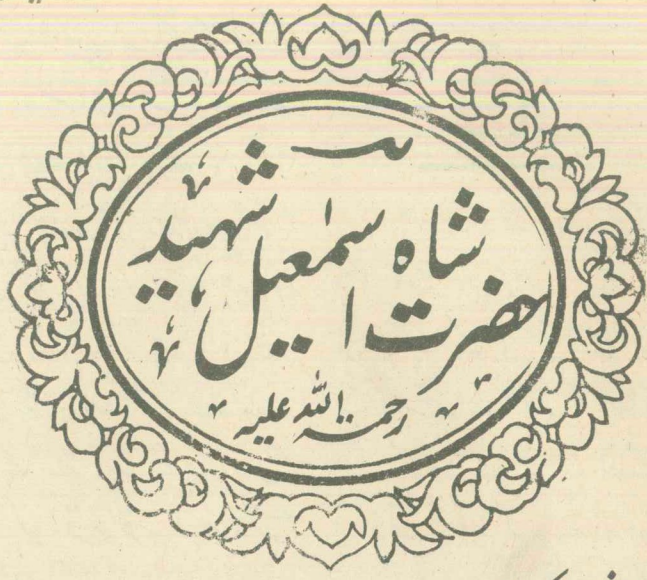 حضرت شاہ اسمٰعیل شہید
رحمۃ اللہ علیہ